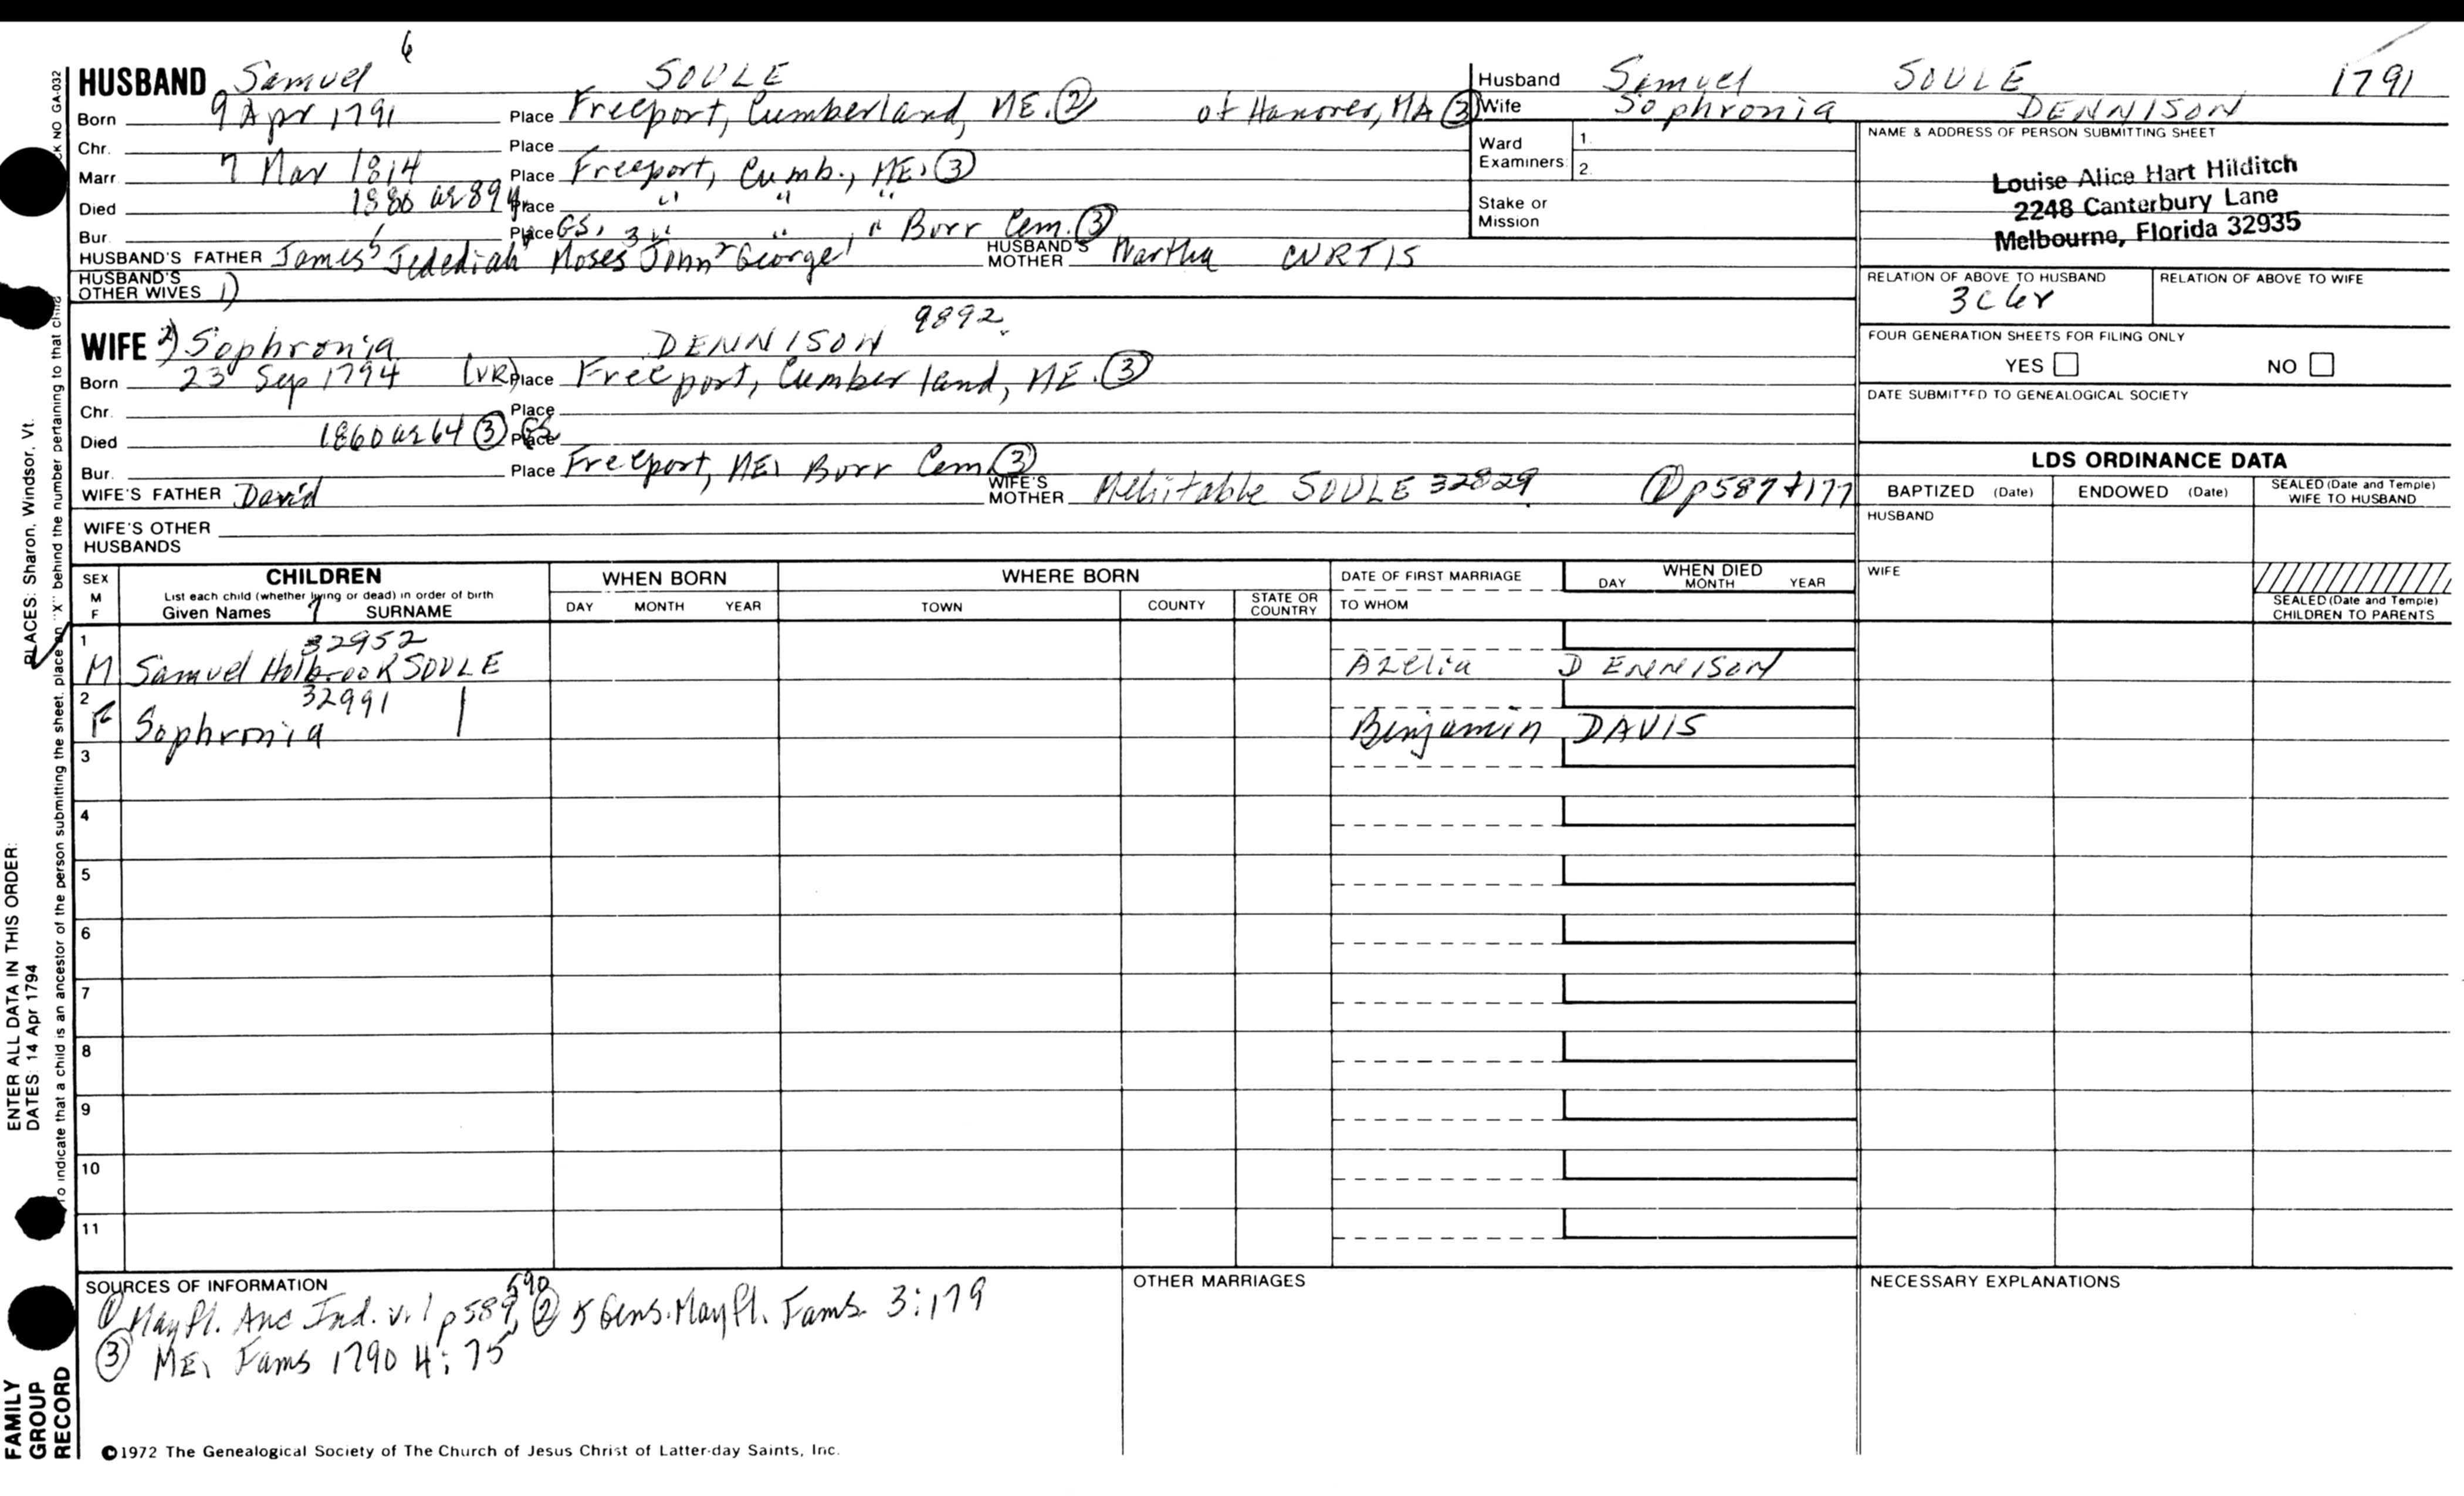 HUSBAND Samuel 6 SOULE
Born 9 Apr 1791 Place Freeport, Cumberland, ME. ② of Hanover, MA ③
Chr. Place
Marr. 7 Mar 1814 Place Freeport, Cumb., ME. ③
Died 1880 ae 89 y. Place " " "
Bur. Place GS, 3 " " " Burr Cem. ③
HUSBAND'S FATHER James 5 Jedediah 4 Moses 3 John 2 George 1 HUSBAND'S MOTHER Martha CURTIS
HUSBAND'S OTHER WIVES 1)
WIFE 2) Sophronia DENNISON 9892
Born 23 Sep 1794 (VR) Place Freeport, Cumberland, ME. ③
Chr. Place
Died 1860 ae 64 ③ GS Place
Bur. Place Freeport, ME. Burr Cem. ③
WIFE'S FATHER David WIFE'S MOTHER Mehitable SOULE 32829 ① p 589 + 177
WIFE'S OTHER HUSBANDS
Husband Samuel SOULE 1791
Wife Sophronia DENNISON
Ward Examiners 1. 2.
Stake or Mission
NAME & ADDRESS OF PERSON SUBMITTING SHEET
Louise Alice Hart Hilditch
2248 Canterbury Lane
Melbourne, Florida 32935
RELATION OF ABOVE TO HUSBAND RELATION OF ABOVE TO WIFE
3C6r
FOUR GENERATION SHEETS FOR FILING ONLY
YES NO
DATE SUBMITTED TO GENEALOGICAL SOCIETY
LDS ORDINANCE DATA
BAPTIZED (Date) ENDOWED (Date) SEALED (Date and Temple) WIFE TO HUSBAND
HUSBAND
WIFE
SEALED (Date and Temple) CHILDREN TO PARENTS
SEX M F CHILDREN List each child (whether living or dead) in order of birth Given Names 7 SURNAME
WHEN BORN DAY MONTH YEAR
WHERE BORN TOWN COUNTY STATE OR COUNTRY
DATE OF FIRST MARRIAGE TO WHOM
WHEN DIED DAY MONTH YEAR
1 32952
M Samuel Holbrook SOULE Azelia DENNISON
2 32991
F Sophronia Benjamin DAVIS
3
4
5
6
7
8
9
10
11
SOURCES OF INFORMATION
① Mayfl. Anc Ind. v.1 p 589, 590 ② 5 Gens. Mayfl. Fams. 3:179
③ ME. Fams 1790 4:75
OTHER MARRIAGES
NECESSARY EXPLANATIONS
©1972 The Genealogical Society of The Church of Jesus Christ of Latter-day Saints, Inc.
CK NO GA-032
To indicate that a child is an ancestor of the person submitting the sheet, place an "X" behind the number pertaining to that child
ENTER ALL DATA IN THIS ORDER:
DATES: 14 Apr 1794
PLACES: Sharon, Windsor, Vt.
FAMILY GROUP RECORD